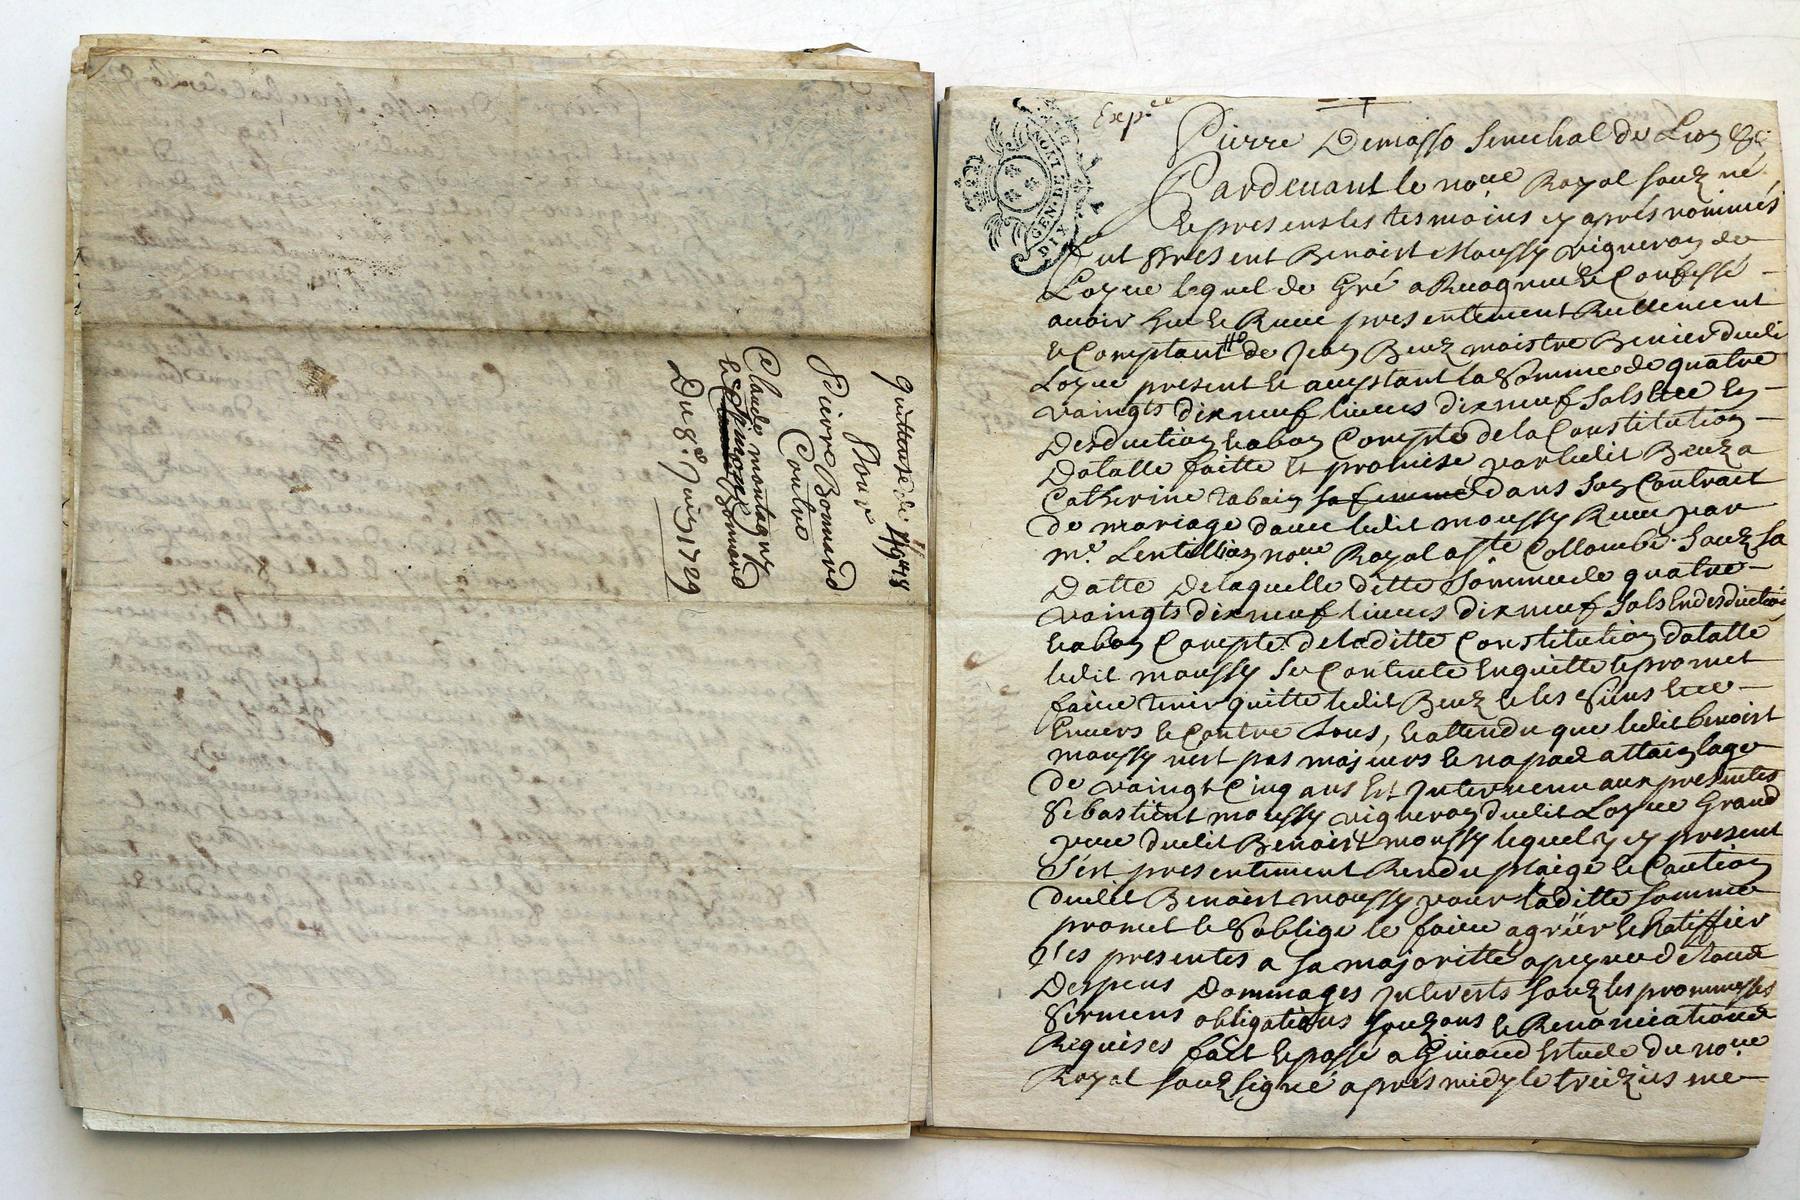 quittance de 449ˡˡ 18
Pour
Pierre Bonnard
Contre
Claude montagny
et Simone Bonnard
Du 8ᵉ Juin 1729
Expᵉᵉ
GEN·DE LION
DIX DEN
Pierre Demasso Senechal de Lion &c
Pardevant le noʳᵉ Royal souz né
et presens les tesmoins cy aprés nommés
fut present Benoist Moussy vigneron de
Loyue lequel de Gré a Recognu et Confessé
avoir hut et Receu presentement Reellement
et Comptant de Jean Beuz maistre Benier dudit
Loyue present et aceptant la Somme de quatre
vaingts dixneuf livres dixneuf sols et ce En
Desduction et a bon Compte de la Constitution
Dotalle faitte et promise par ledit Beuz a
Catherine Tabain sa femme dans son Contrait
de mariage davec ledit moussy Receu par
mᵉ. Lentillion noʳᵉ Royal a Sᵗᵉ Collombe souz sa
Datte De laquelle ditte Somme de quatre
vaingts dixneuf livres dixneuf sols En desduction
et a bon Compte de laditte Constitution dotalle
ledit moussy se Contente En quitte et promet
faire tenir quitte ledit Beuz et les Siens et ce
Envers et Contre tous, et attendu que ledit benoist
moussy nest pas majeurs et na pas attain lage
de vaingt Cinq ans Est Intervenu aux presentes
Sebastient moussy vigneron dudit Loyue Grand
pere dudit Benoist moussy lequel y cy present
s'est presentement Rendu plaige et Caution
dudit Benoist moussy pour laditte somme
promet et S'oblige le faire agrëer et Ratiffier
C'es presentes a sa majoritté a peyne de tous
Despens Dommages Interests souz les prommesses
Sermens obligations souzons et Renonciations
Requises fait et passé a Givord Estude du noʳᵉ
Royal souz signé aprés midy le treizies me